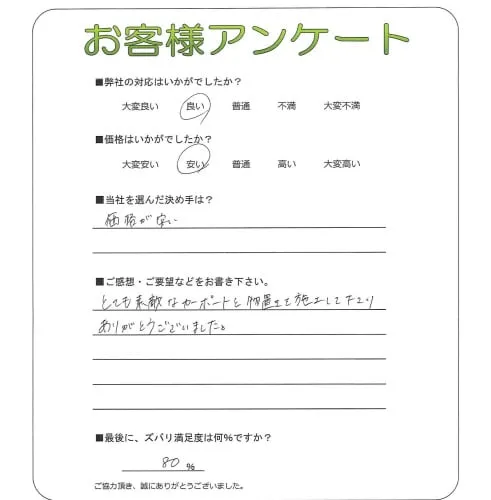 お客様アンケート
■弊社の対応はいかがでしたか?
大変良い 良い 普通 不満 大変不満
■価格はいかがでしたか?
大変安い 安い 普通 高い 大変高い
■当社を選んだ決め手は?
価格が安い
■ご感想・ご要望などをお書き下さい。
とても素敵なカーポートと物置まで施工して下さり
ありがとうございました。
■最後に、ズバリ満足度は何%ですか?
80 %
ご協力頂き、誠にありがとうございました。